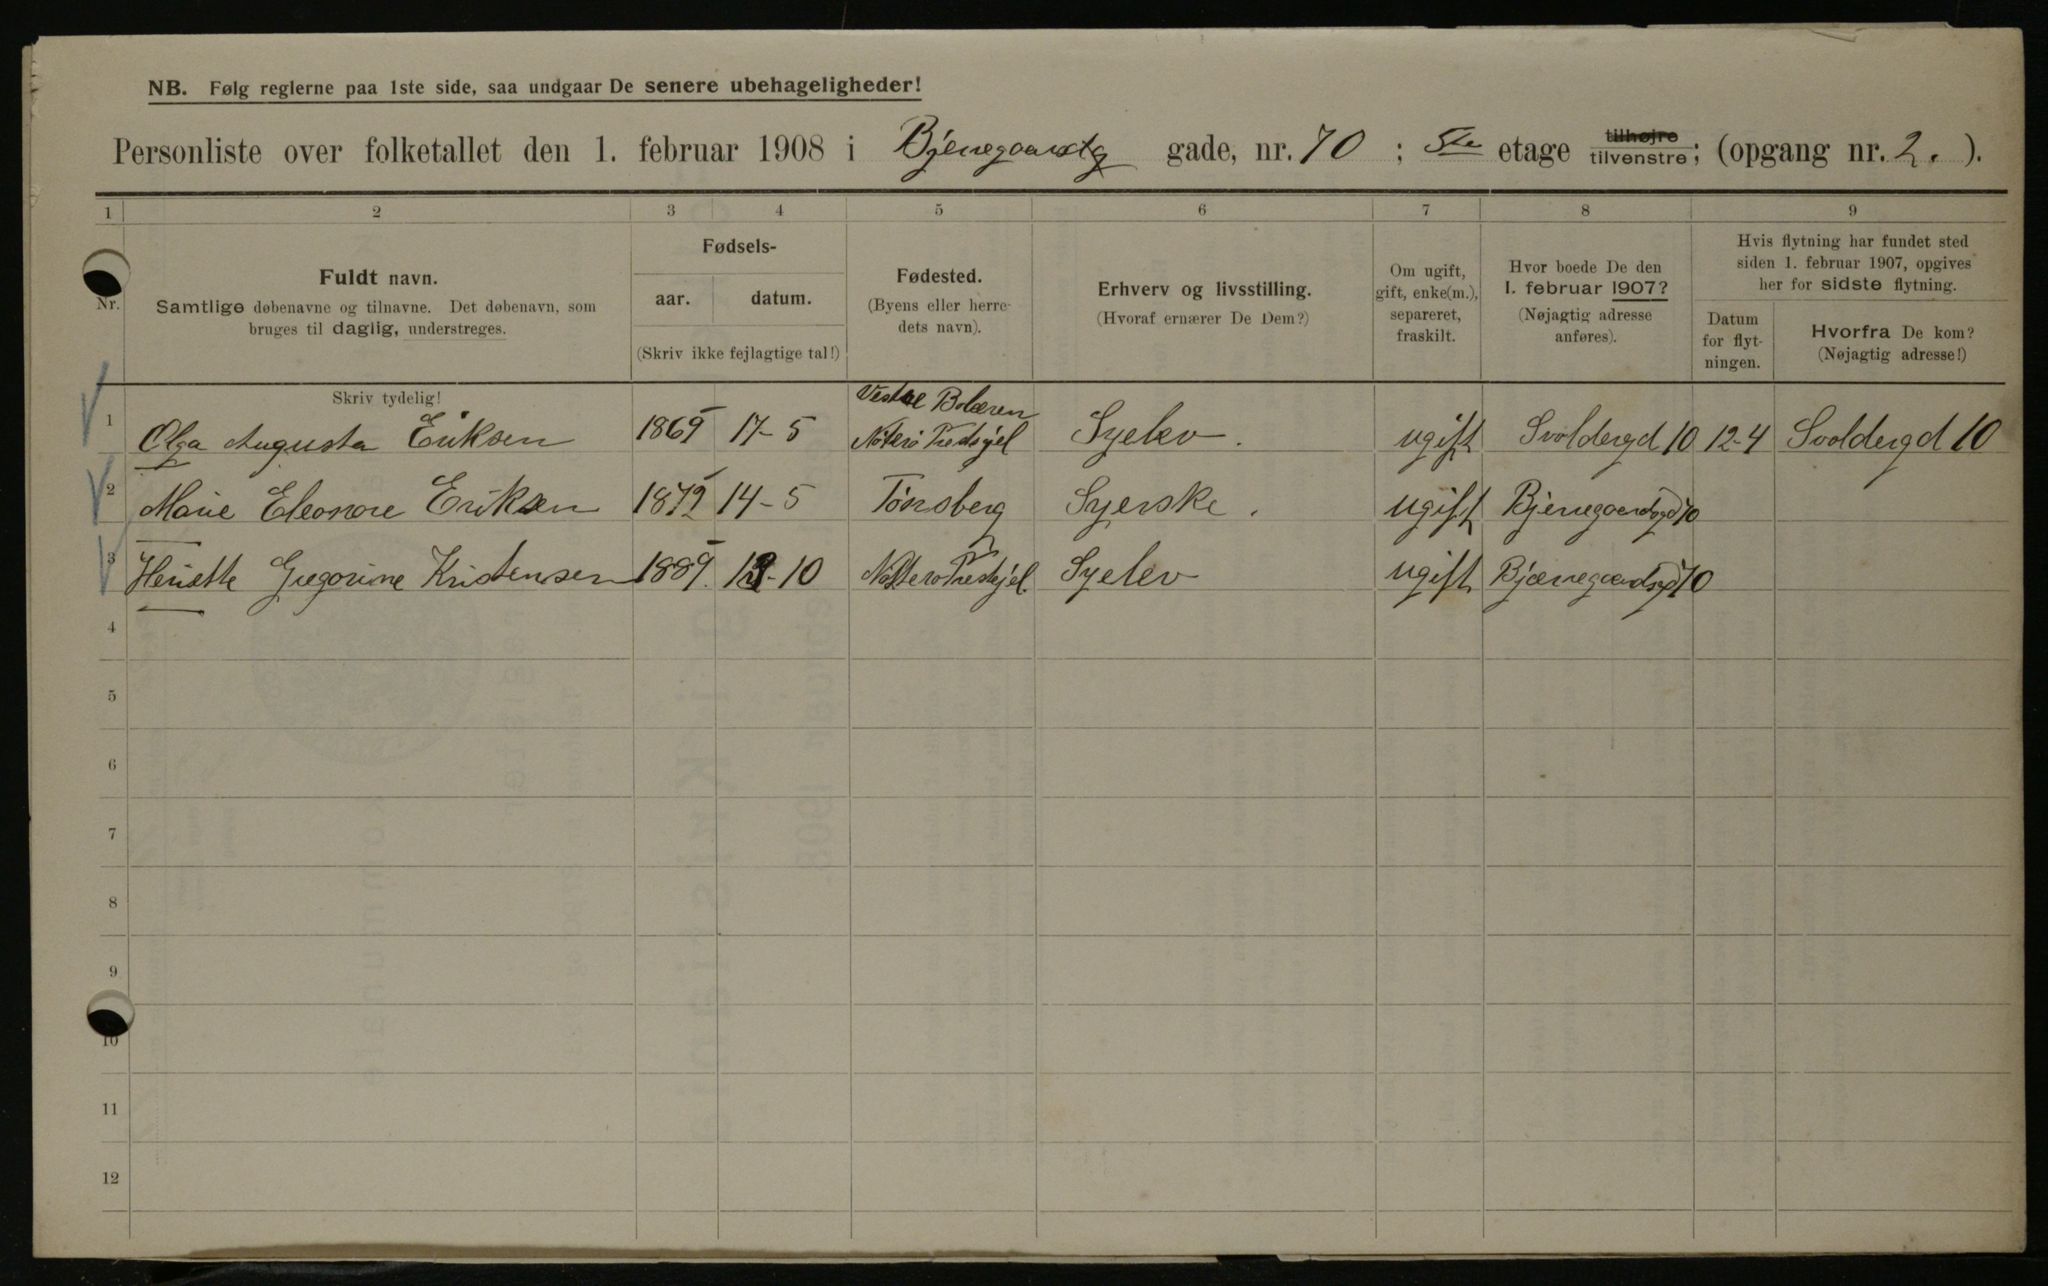 NB. Følg reglerne paa 1ste side, saa undgaar De senere ubehageligheder!
Personliste over folketallet den 1. februar 1908 i Bjenegaarstg gade, nr. 70 ; 5te etage tilhøjre tilvenstre; (opgang nr. 2. ).
1 2 3 4 5 6 7 8 9
Nr.
Fuldt navn.
Samtlige døbenavne og tilnavne. Det døbenavn, som
bruges til daglig, understreges.
Skriv tydelig!
Fødsels-
aar. datum.
(Skriv ikke fejlagtige tal!)
Fødested.
(Byens eller herre-
dets navn).
Erhverv og livsstilling.
(Hvoraf ernærer De Dem?)
Om ugift,
gift, enke(m.),
separeret,
fraskilt.
Hvor boede De den
1. februar 1907?
(Nøjagtig adresse
anføres).
Hvis flytning har fundet sted
siden 1. februar 1907, opgives
her for sidste flytning.
Datum
for flyt-
ningen.
Hvorfra De kom?
(Nøjagtig adresse!)
Vestre Bolæren
1 Olga Augusta Eriksen 1869 17-5 Nøterø Prestgjel Syelev. ugift Svoldergd 10 12-4 Svoldergd 10
2 Marie Eleonore Eriksen 1872 14-5 Tønsberg Syerske. ugift Bjenegaardsgd 70
3 Henriette Gregorine Kristensen 1889. -10 Nøtterø Prestgjel. Syelev ugift Bjærregaardsgd 70
4
5
6
7
8
9
10
11
12